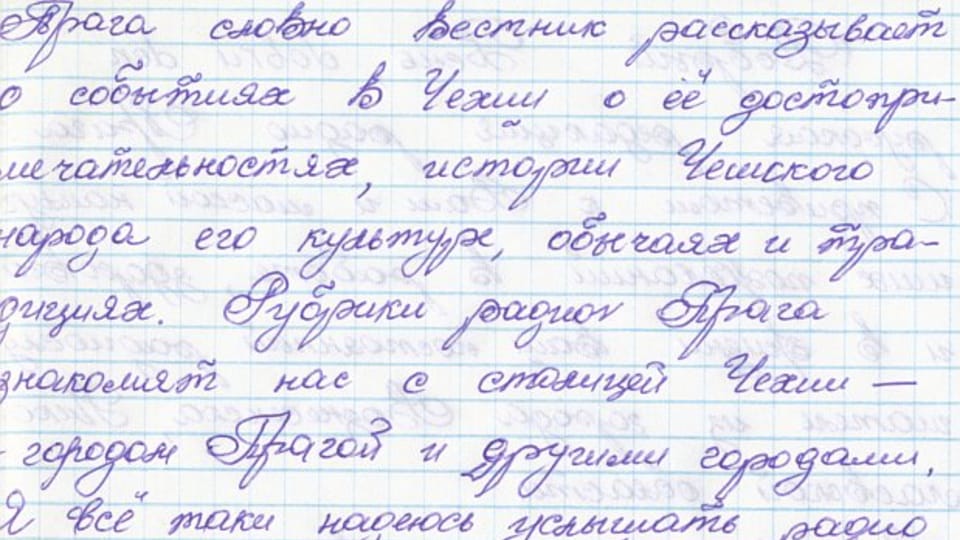 Прага словно вестник рассказывает
о событиях в Чехии о её достопри-
мечательностях, истории Чешского
народа его культуре, обычаях и тра-
дициях. Рубрики радио Прага
знакомят нас с столицей Чехии —
городом Прагой и другими городами.
Я всё таки надеюсь услышать радио